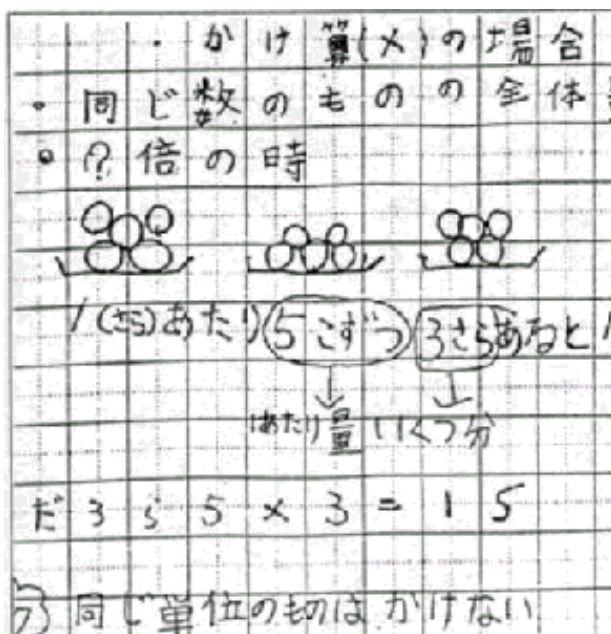 ・・・かけ算(×)の場合
・同じ数のものの全体
・?倍の時
1(さら)あたり5こずつ3さらあると
1あたり量 いくつ分
だから5×3=15
同じ単位のものは、かけない